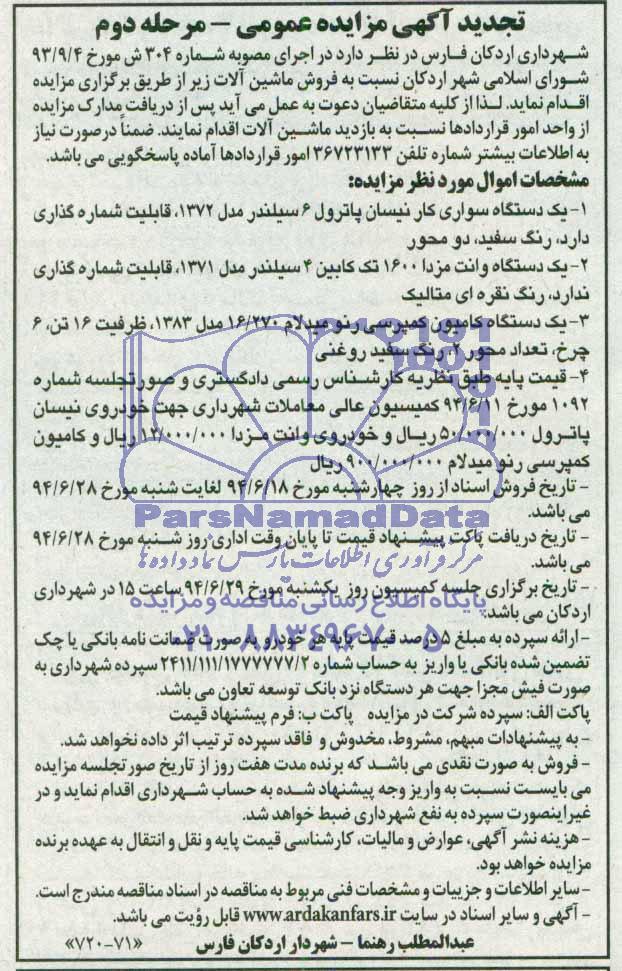 تجدید آگهی مزایده عمومی – مرحله دوم
شهرداری اردکان فارس در نظر دارد در اجرای مصوبه شماره ۳۰۴ ش مورخ ۹۳/۹/۴
شورای اسلامی شهر اردکان نسبت به فروش ماشین آلات زیر از طریق برگزاری مزایده
اقدام نماید. لذا از کلیه متقاضیان دعوت به عمل می آید پس از دریافت مدارک مزایده
از واحد امور قراردادها نسبت به بازدید ماشین آلات اقدام نمایند. ضمناً درصورت نیاز
به اطلاعات بیشتر شماره تلفن ۳۶۷۲۳۱۳۳ امور قراردادها آماده پاسخگویی می باشد.
مشخصات اموال مورد نظر مزایده:
۱- یک دستگاه سواری کار نیسان پاترول ۶ سیلندر مدل ۱۳۷۲، قابلیت شماره گذاری
دارد، رنگ سفید، دو محور
۲- یک دستگاه وانت مزدا ۱۶۰۰ تک کابین ۴ سیلندر مدل ۱۳۷۱، قابلیت شماره گذاری
ندارد، رنگ نقره ای متالیک
۳- یک دستگاه کامیون کمپرسی رنو میدلام ۱۶/۲۷۰ مدل ۱۳۸۳، ظرفیت ۱۶ تن، ۶
چرخ، تعداد محور ۲، رنگ سفید روغنی
۴- قیمت پایه طبق نظریه کارشناس رسمی دادگستری و صورتجلسه شماره
۱۰۹۲ مورخ ۹۴/۶/۱۱ کمیسیون عالی معاملات شهرداری جهت خودروی نیسان
پاترول ۵۰/۰۰۰/۰۰۰ ریال و خودروی وانت مزدا ۱۲/۰۰۰/۰۰۰ ریال و کامیون
کمپرسی رنو میدلام ۹۰۰/۰۰۰/۰۰۰ ریال
- تاریخ فروش اسناد از روز چهارشنبه مورخ ۹۴/۶/۱۸ لغایت شنبه مورخ ۹۴/۶/۲۸
می باشد.
ParsNamadData
- تاریخ دریافت پاکت پیشنهاد قیمت تا پایان وقت اداری روز شنبه مورخ ۹۴/۶/۲۸
می باشد.
مرکز فرآوری اطلاعات پارس نماد داده ها
- تاریخ برگزاری جلسه کمیسیون روز یکشنبه مورخ ۹۴/۶/۲۹ ساعت ۱۵ در شهرداری
اردکان می باشد.
پایگاه اطلاع رسانی مناقصه و مزایده
- ارائه سپرده به مبلغ ۵ درصد قیمت پایه هر خودرو به صورت ضمانت نامه بانکی یا چک
۰۲۱-۸۸۳۴۹۶۷۰-۵
تضمین شده بانکی یا واریز به حساب شماره ۲۴۱۱/۱۱۱/۱۷۷۷۷۷۷/۲ سپرده شهرداری به
صورت فیش مجزا جهت هر دستگاه نزد بانک توسعه تعاون می باشد.
پاکت الف: سپرده شرکت در مزایده پاکت ب: فرم پیشنهاد قیمت
- به پیشنهادات مبهم، مشروط، مخدوش و فاقد سپرده ترتیب اثر داده نخواهد شد.
- فروش به صورت نقدی می باشد که برنده مدت هفت روز از تاریخ صورتجلسه مزایده
می بایست نسبت به واریز وجه پیشنهاد شده به حساب شهرداری اقدام نماید و در
غیر اینصورت سپرده به نفع شهرداری ضبط خواهد شد.
- هزینه نشر آگهی، عوارض و مالیات، کارشناسی قیمت پایه و نقل و انتقال به عهده برنده
مزایده خواهد بود.
- سایر اطلاعات و جزییات و مشخصات فنی مربوط به مناقصه در اسناد مناقصه مندرج است.
- آگهی و سایر اسناد در سایت www.ardakanfars.ir قابل رؤیت می باشد.
عبدالمطلب رهنما – شهردار اردکان فارس «۷۲۰-۷۱»